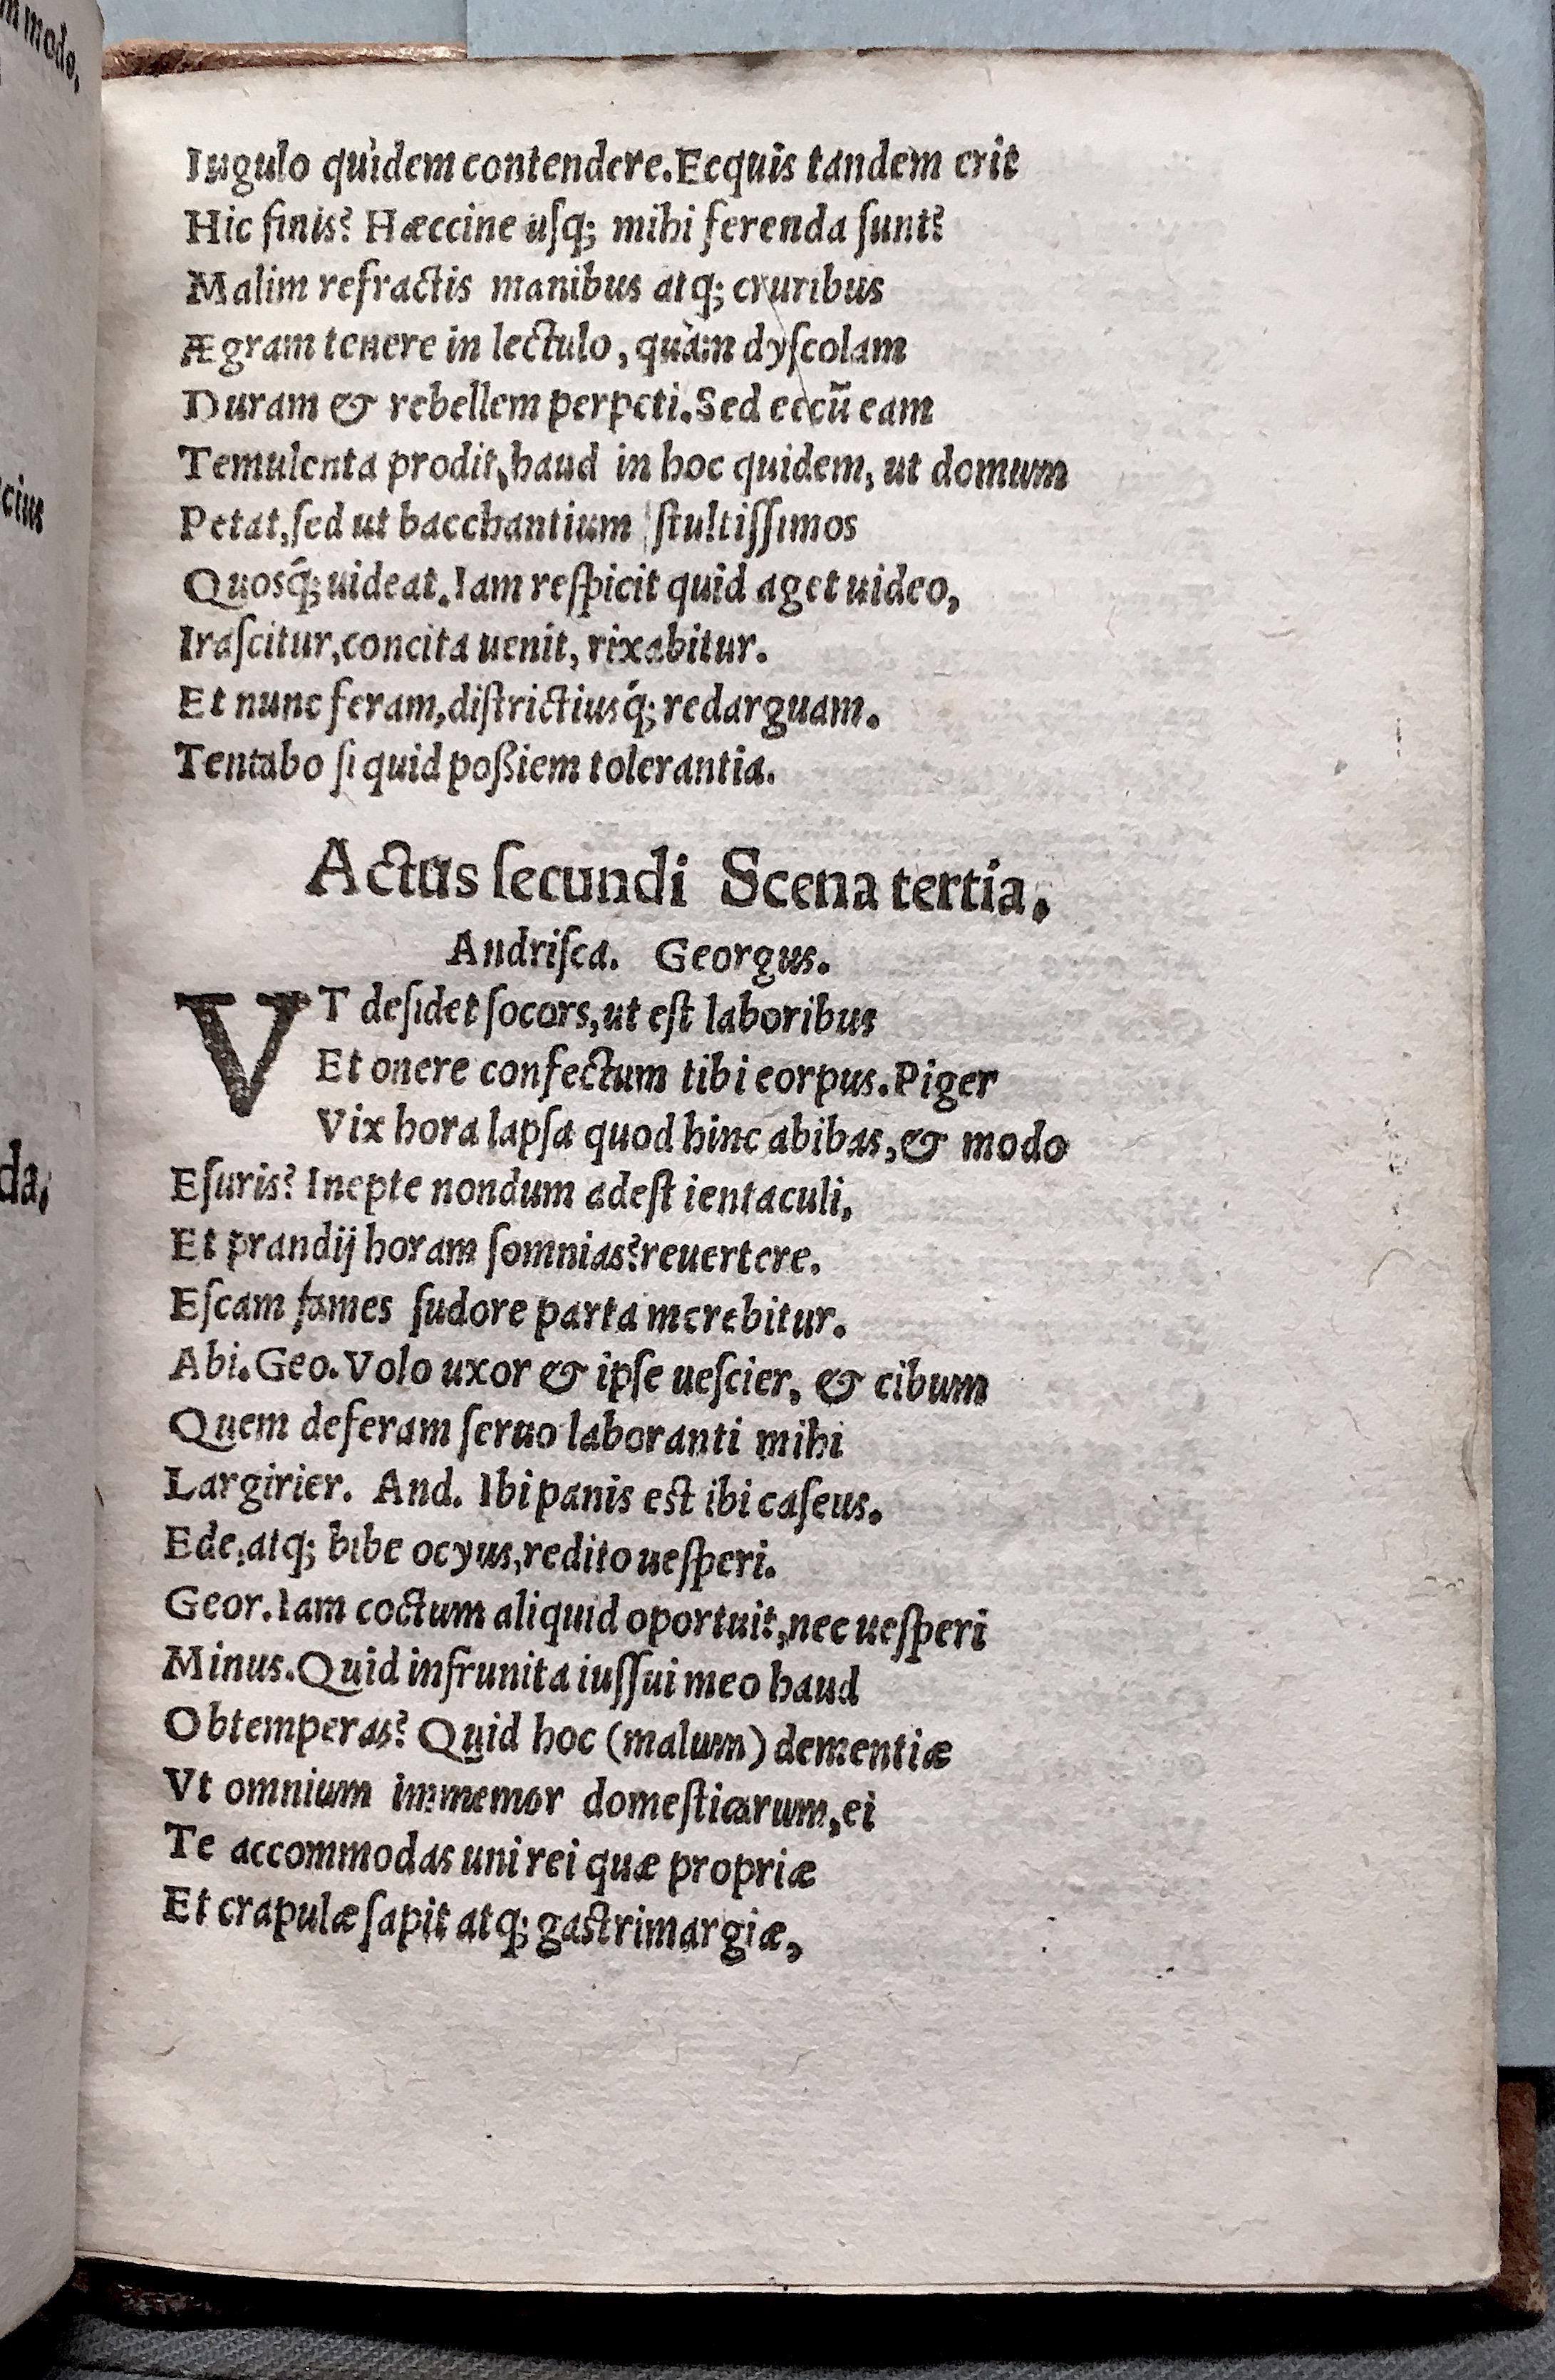 Iugulo quìdem contendere.Ecquis tandem erit
Hic finis? Hæccine uſq; mihi ferenda ſunt?
Malim refractis manibus atq; cruribus
Ægram tenere in lectulo, quàm dyſcolam
Duram & rebellem perpeti.Sed eccū eam
Temulenta prodit,haud in hoc quidem, ut domum
Petat,ſed ut bacchantium ſtultiſſimos
Quosq́; uideat.Iam reſpicit quid aget uideo,
Iraſcitur,concita uenit, rixabitur.
Et nunc feram,diſtrictiusq́; redarguam.
Tentabo ſi quid poßiem tolerantia.
Actus ſecundi Scena tertia.
Andriſca. Georgus.
VT deſidet ſocors,ut eſt laboribus
Et onere confectum tibi corpus.Piger
Vix hora lapſa quod hinc abibas,& modo
Eſuris? Inepte nondum adeſt ientaculi,
Et prandij horam ſomnias?reuertere.
Eſcam fames ſudore parta merebitur.
Abi.Geo.Volo uxor & ipſe ueſcier, & cibum
Quem deferam ſeruo laboranti mihi
Largirier. And. Ibi panis est ibi caſeus.
Ede,atq; bibe ocyus,redito ueſperi.
Geor.Iam coctum aliquid oportuit,nec ueſperi
Minus.Quid infrunita iuſſui meo haud
Obtemperas? Quid hoc (malum) dementiæ
Vt omnium immemor domeſticarum,ei
Te accommodas uni rei quæ propriæ
Et crapulæ ſapit atq; gastrimargiæ,